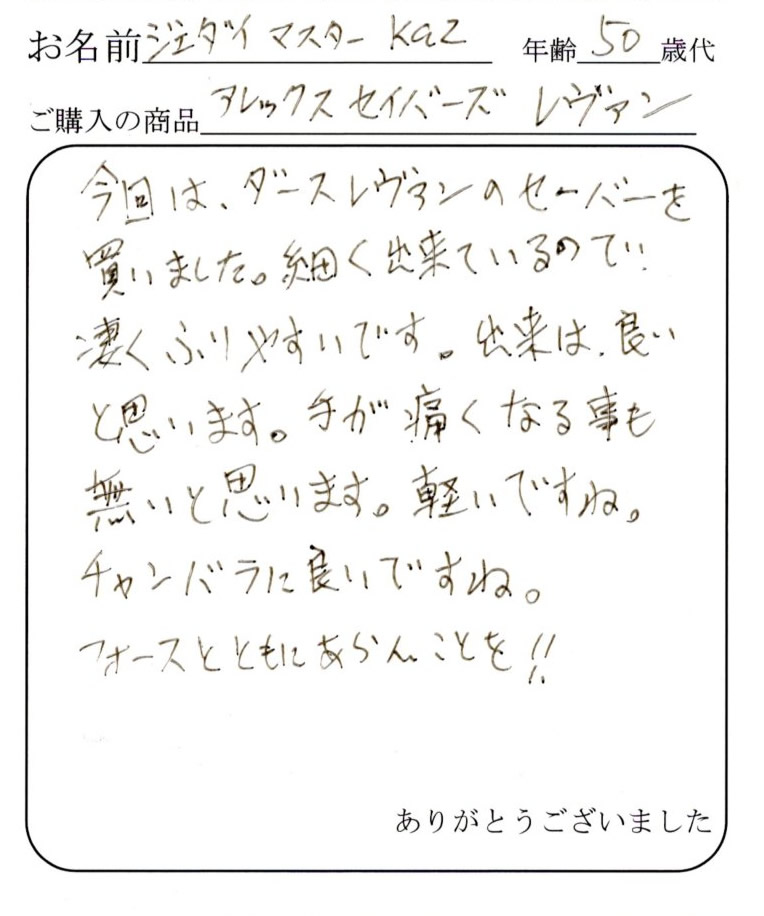 お名前 ジェダイ マスター kaz 年齢 50 歳代
ご購入の商品 アレックス セイバーズ レヴァン
今回は、ダースレヴァンのセーバーを
買いました。細く出来ているので、
凄くふりやすいです。出来は、良い
と思います。手が痛くなる事も
無いと思います。軽いですね。
チャンバラに良いですね。
フォースとともにあらんことを!!
ありがとうございました